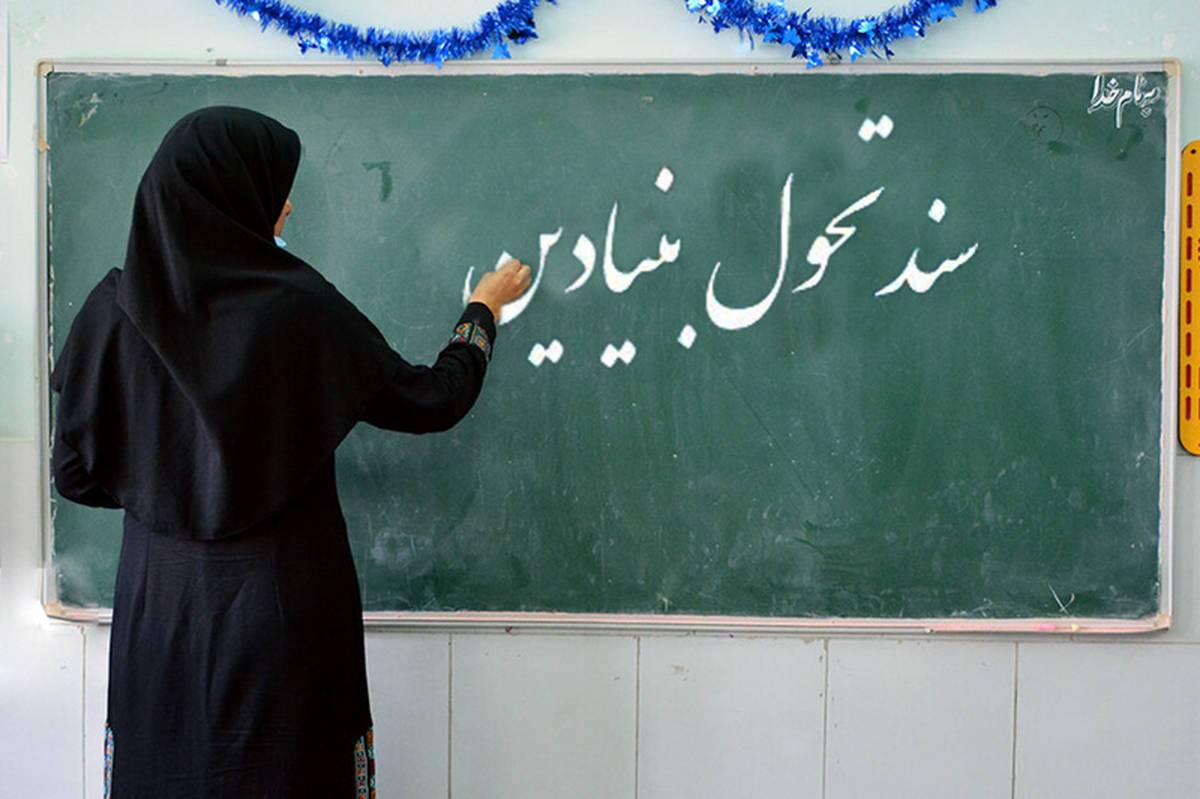 بنام خدا
سند تحول بنیادین